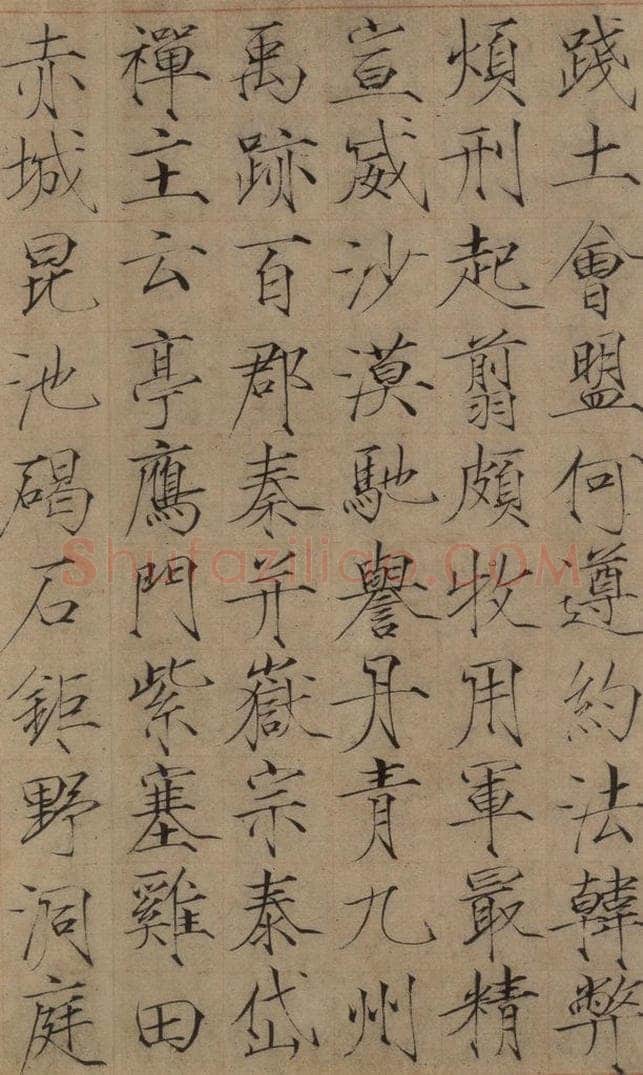 踐土會盟何遵約法韓弊
煩刑起翦頗牧用軍最精
宣威沙漠馳譽丹青九州
禹跡百郡秦并嶽宗泰岱
禪主云亭鴈門紫塞雞田
赤城昆池碣石鉅野洞庭
Shufaziliao.COM